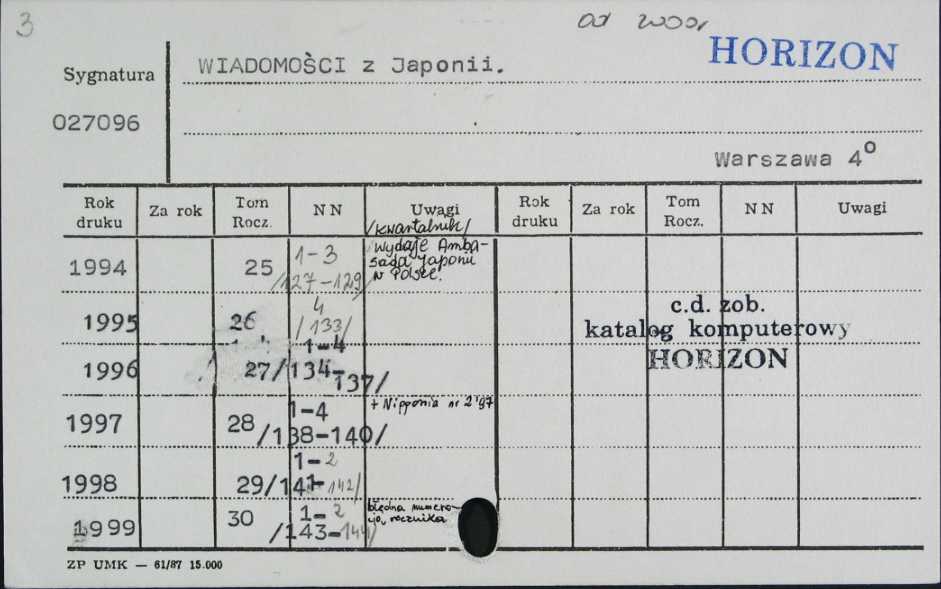 3
od 2001
HORIZON
Sygnatura
WIADOMOŚCI z Japonii.
027096
Warszawa 4°
Rok druku Za rok Tom Rocz. NN Uwagi Rok druku Za rok Tom Rocz. NN Uwagi
/kwartalnik/
wydaje Amba-
sada Japonii
w Polsce.
1994 25 1-3
/127-129/
1995 26 4
/133/
1996 27 1-4
/134-
137/
1997 28 1-4
/138-140/
+ Nipponia nr 2'97
1998 29 1-2
/141-142/
1999 30 1-2
/143-144/
błędna numero-
rocznika
c.d. zob.
katalog komputerowy
HORIZON
ZP UMK — 61/87 15.000